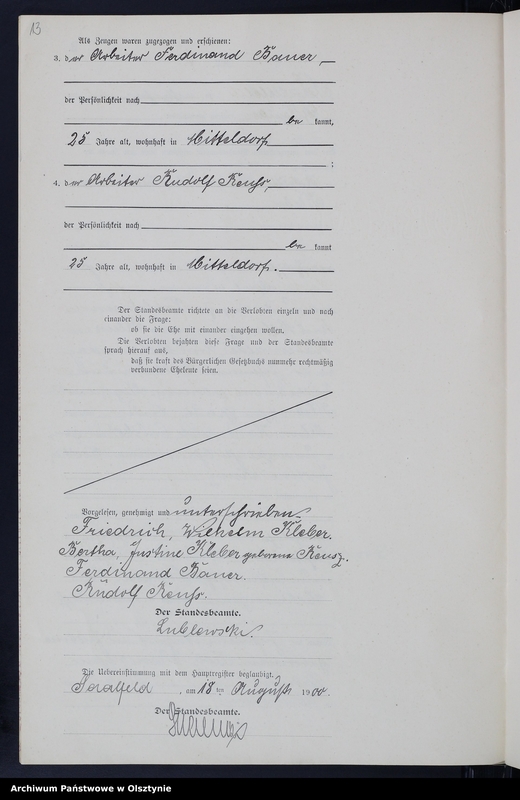 13
Als Zeugen waren zugezogen und erschienen:
3. der Arbeiter Ferdinand Bauer,
der Persönlichkeit nach
be kannt,
25 Jahre alt, wohnhaft in Mitteldorf
;
4. der Arbeiter Rudolf Reuss,
der Persönlichkeit nach
be kannt
25 Jahre alt, wohnhaft in Mitteldorf.
Der Standesbeamte richtete an die Verlobten einzeln und nach
einander die Frage:
ob sie die Ehe mit einander eingehen wollen.
Die Verlobten bejahten diese Frage und der Standesbeamte
sprach hierauf aus,
daß sie kraft des Bürgerlichen Gesetzbuchs nunmehr rechtmäßig
verbundene Eheleute seien.
Vorgelesen, genehmigt und unterschrieben
Friedrich, Wilhelm Kleber.
Bertha, Justine Kleber geborene Reusz.
Ferdinand Bauer.
Rudolf Reuss.
Der Standesbeamte.
Lublewski.
Die Uebereinstimmung mit dem Hauptregister beglaubigt.
Saalfeld, am 18 ten August 1900.
Der Standesbeamte.
Archiwum Państwowe w Olsztynie